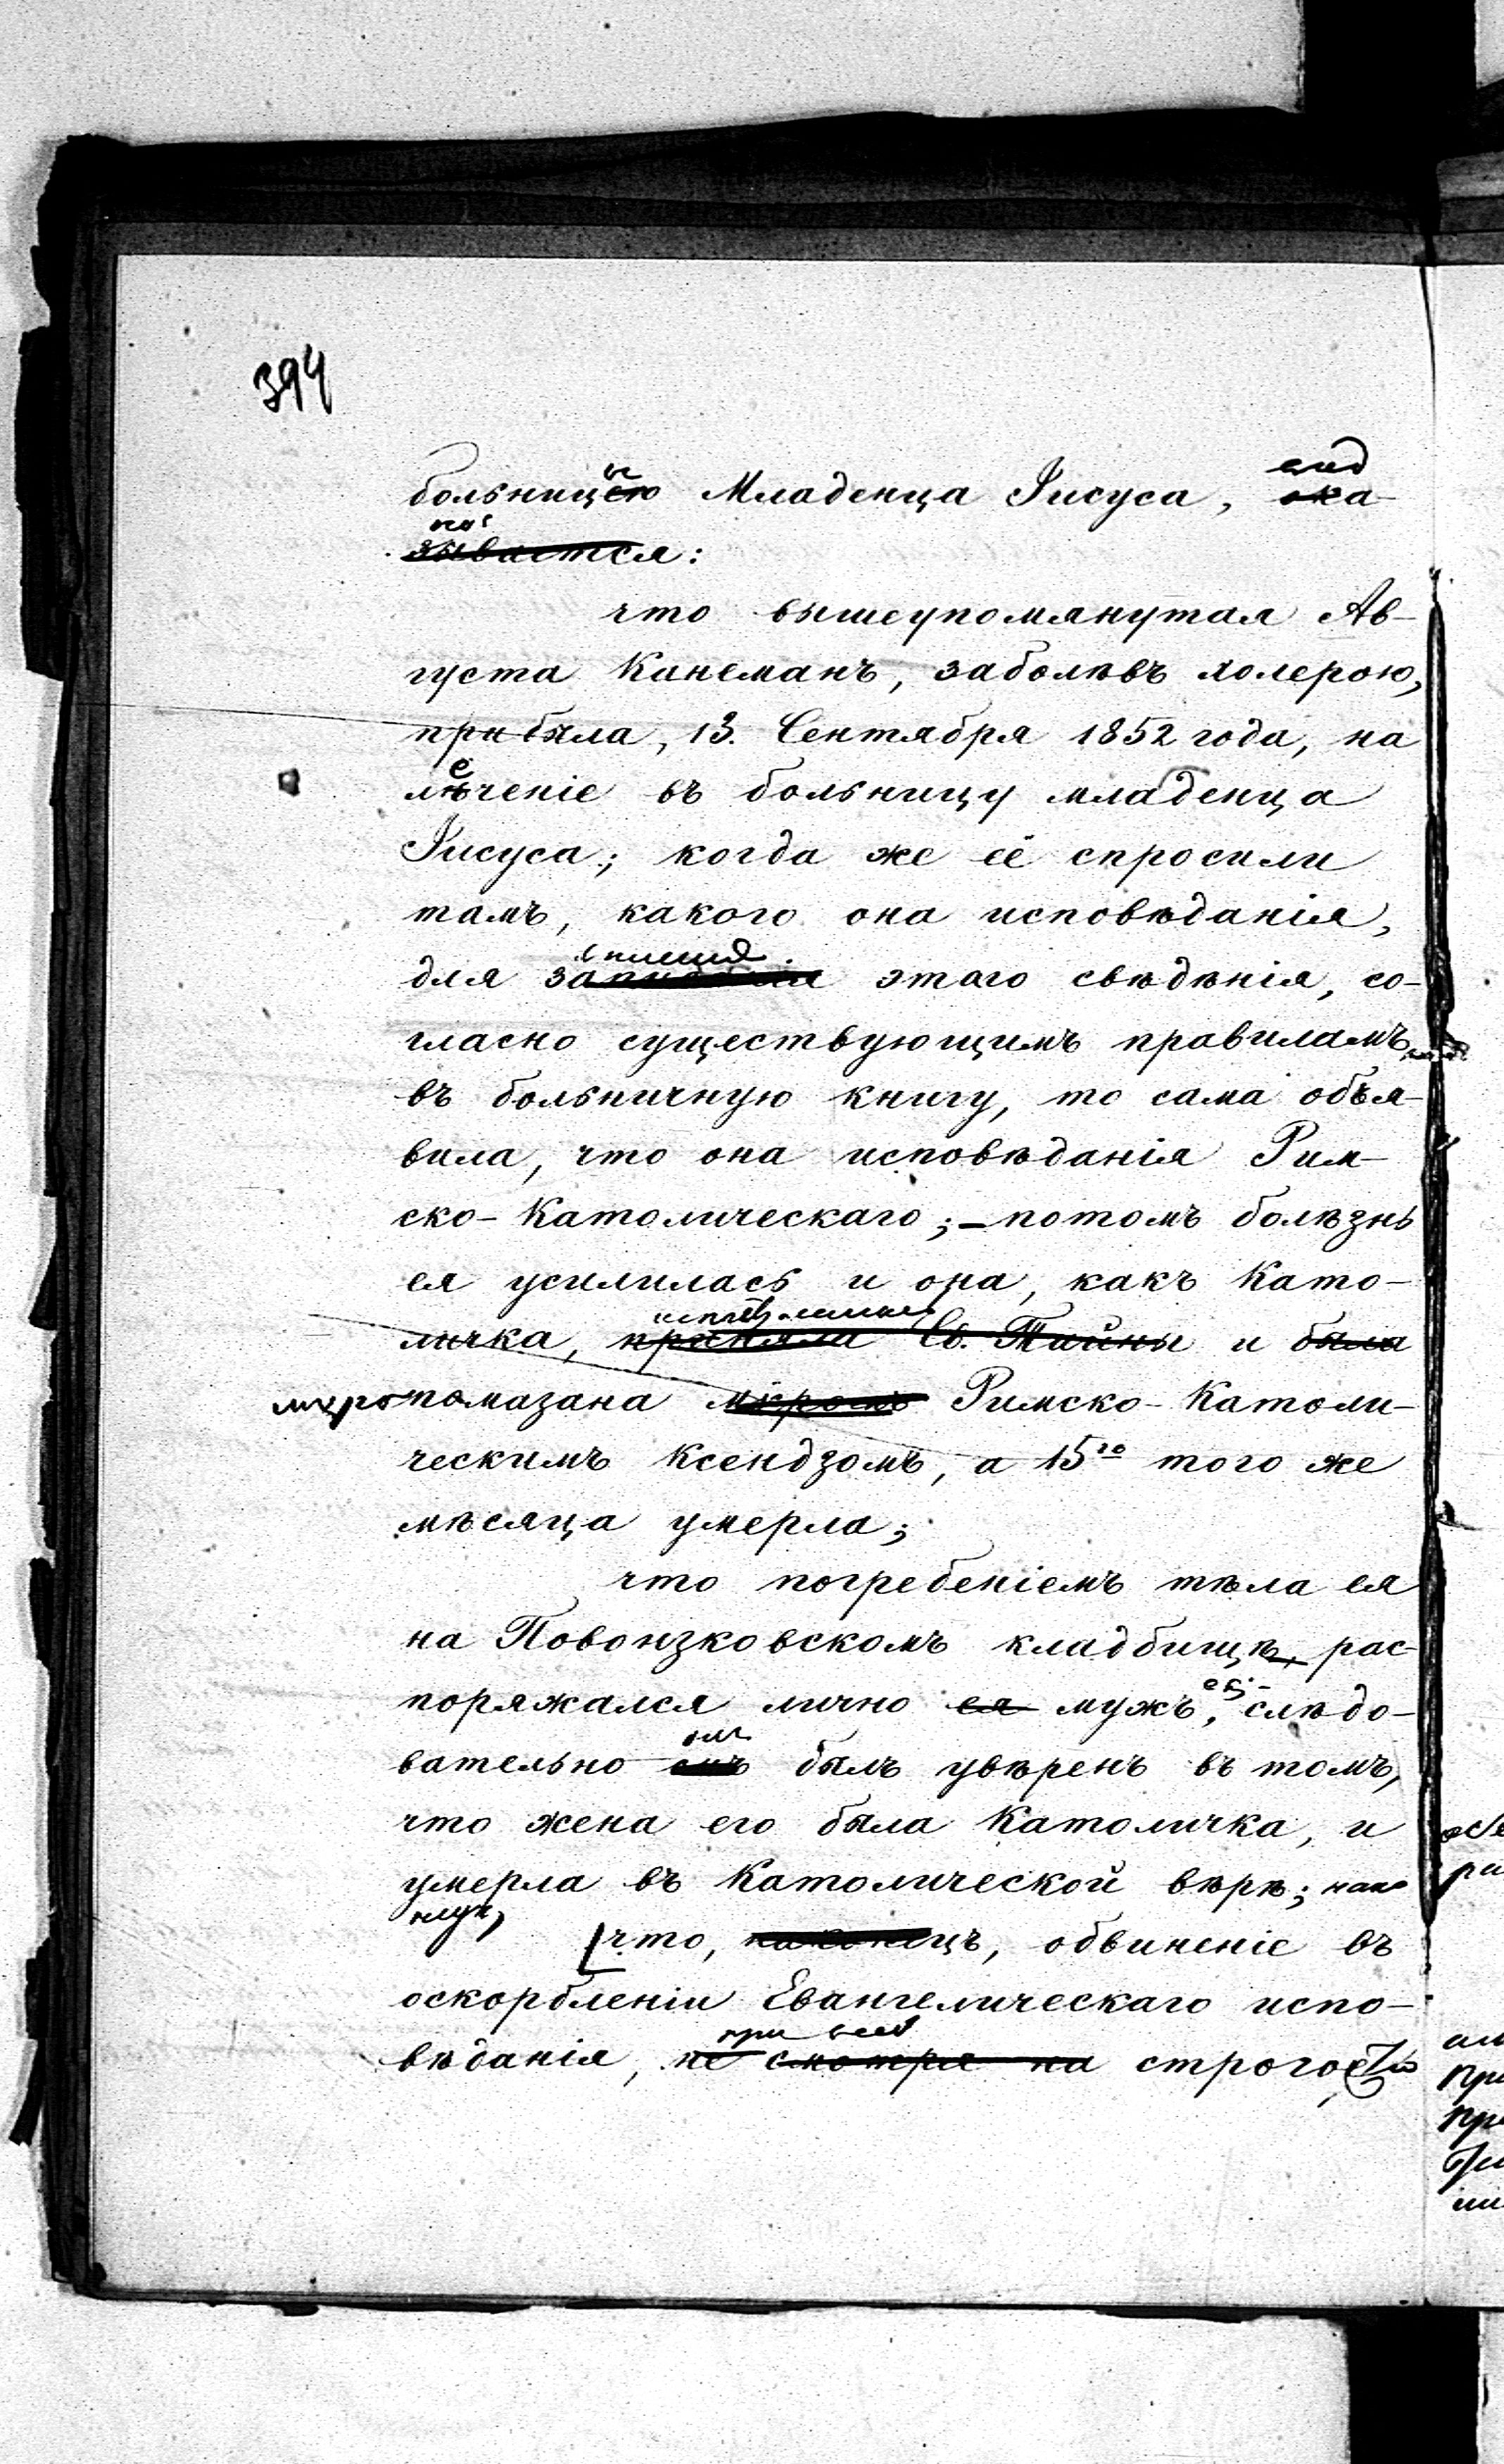 394
больницею Младенца Іисуса, ока-
зывается:
что вышеупомянутая Ав-
густа Кинеманъ, заболѣвъ холерою,
прибыла, 13. Сентября 1852 года, на
лѣченіе въ больницу младенца
Іисуса; когда же её спросили
тамъ, какого она исповѣданія,
для записанія этого свѣдѣнія, со-
гласно существующимъ правиламъ,
въ больничную книгу, то сама объя-
вила, что она исповѣданія Рим-
ско-Католическаго; – потомъ болѣзнь
ея усилилась и она, какъ Като-
личка, приняла Св. Тайны и была
миропомазана мѵромъ Римско-Католи-
ческимъ Ксендзомъ, а 15го того же
мѣсяца умерла;
что погребеніемъ тѣла ея
на Повонзковскомъ кладбищѣ, рас-
поряжался лично ея мужъ, слѣдо-
вательно онъ былъ увѣренъ въ томъ,
что жена его была Католичка, и
умерла въ Католической вѣрѣ;
что, наконецъ, обвиненіе въ
оскорбленіи Евангелическаго испо-
при всей
вѣданія, не смотря на строгость